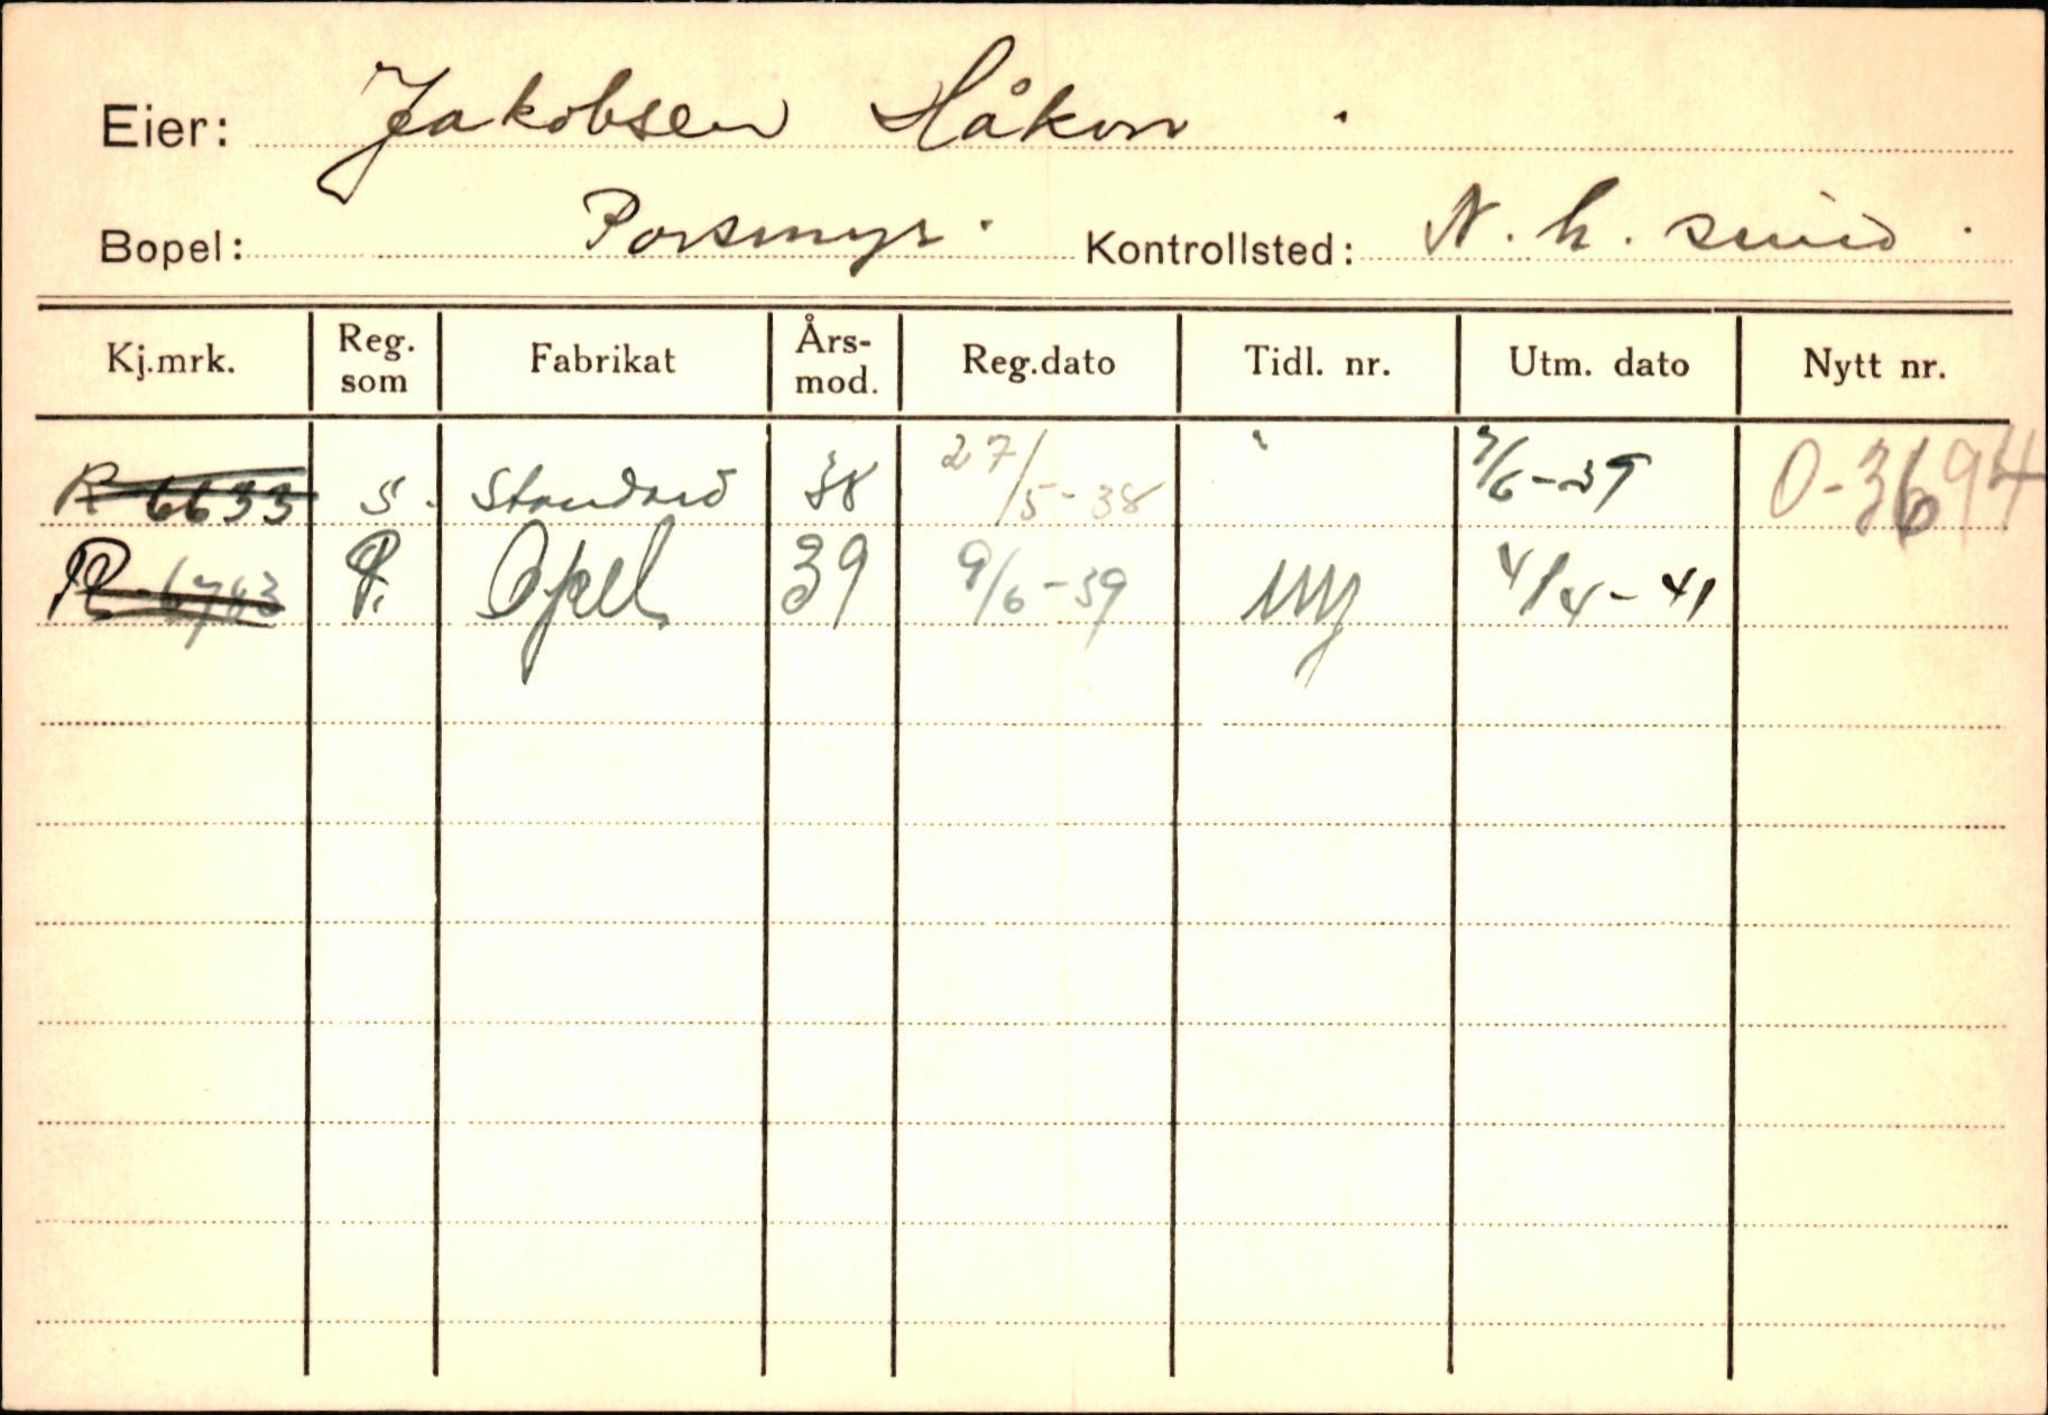 Eier: Jakobsen Håkon
Bopel: Porsmyr. Kontrollsted: N. h. sund.
Kj.mrk. Reg. som Fabrikat Års-mod. Reg.dato Tidl. nr. Utm. dato Nytt nr.
R-6633 S. Standard 38 27/5-38 7/6-39 O-3694
R-6783 P. Opel 39 9/6-39 ny 4/4-41